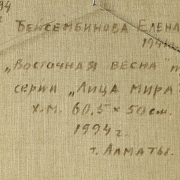 94
Бейсембинова Елена
194
„Восточная весна"
серии „Лица мира"
х.м. 60,5 × 50 см.
1994 г.
г. Алматы.